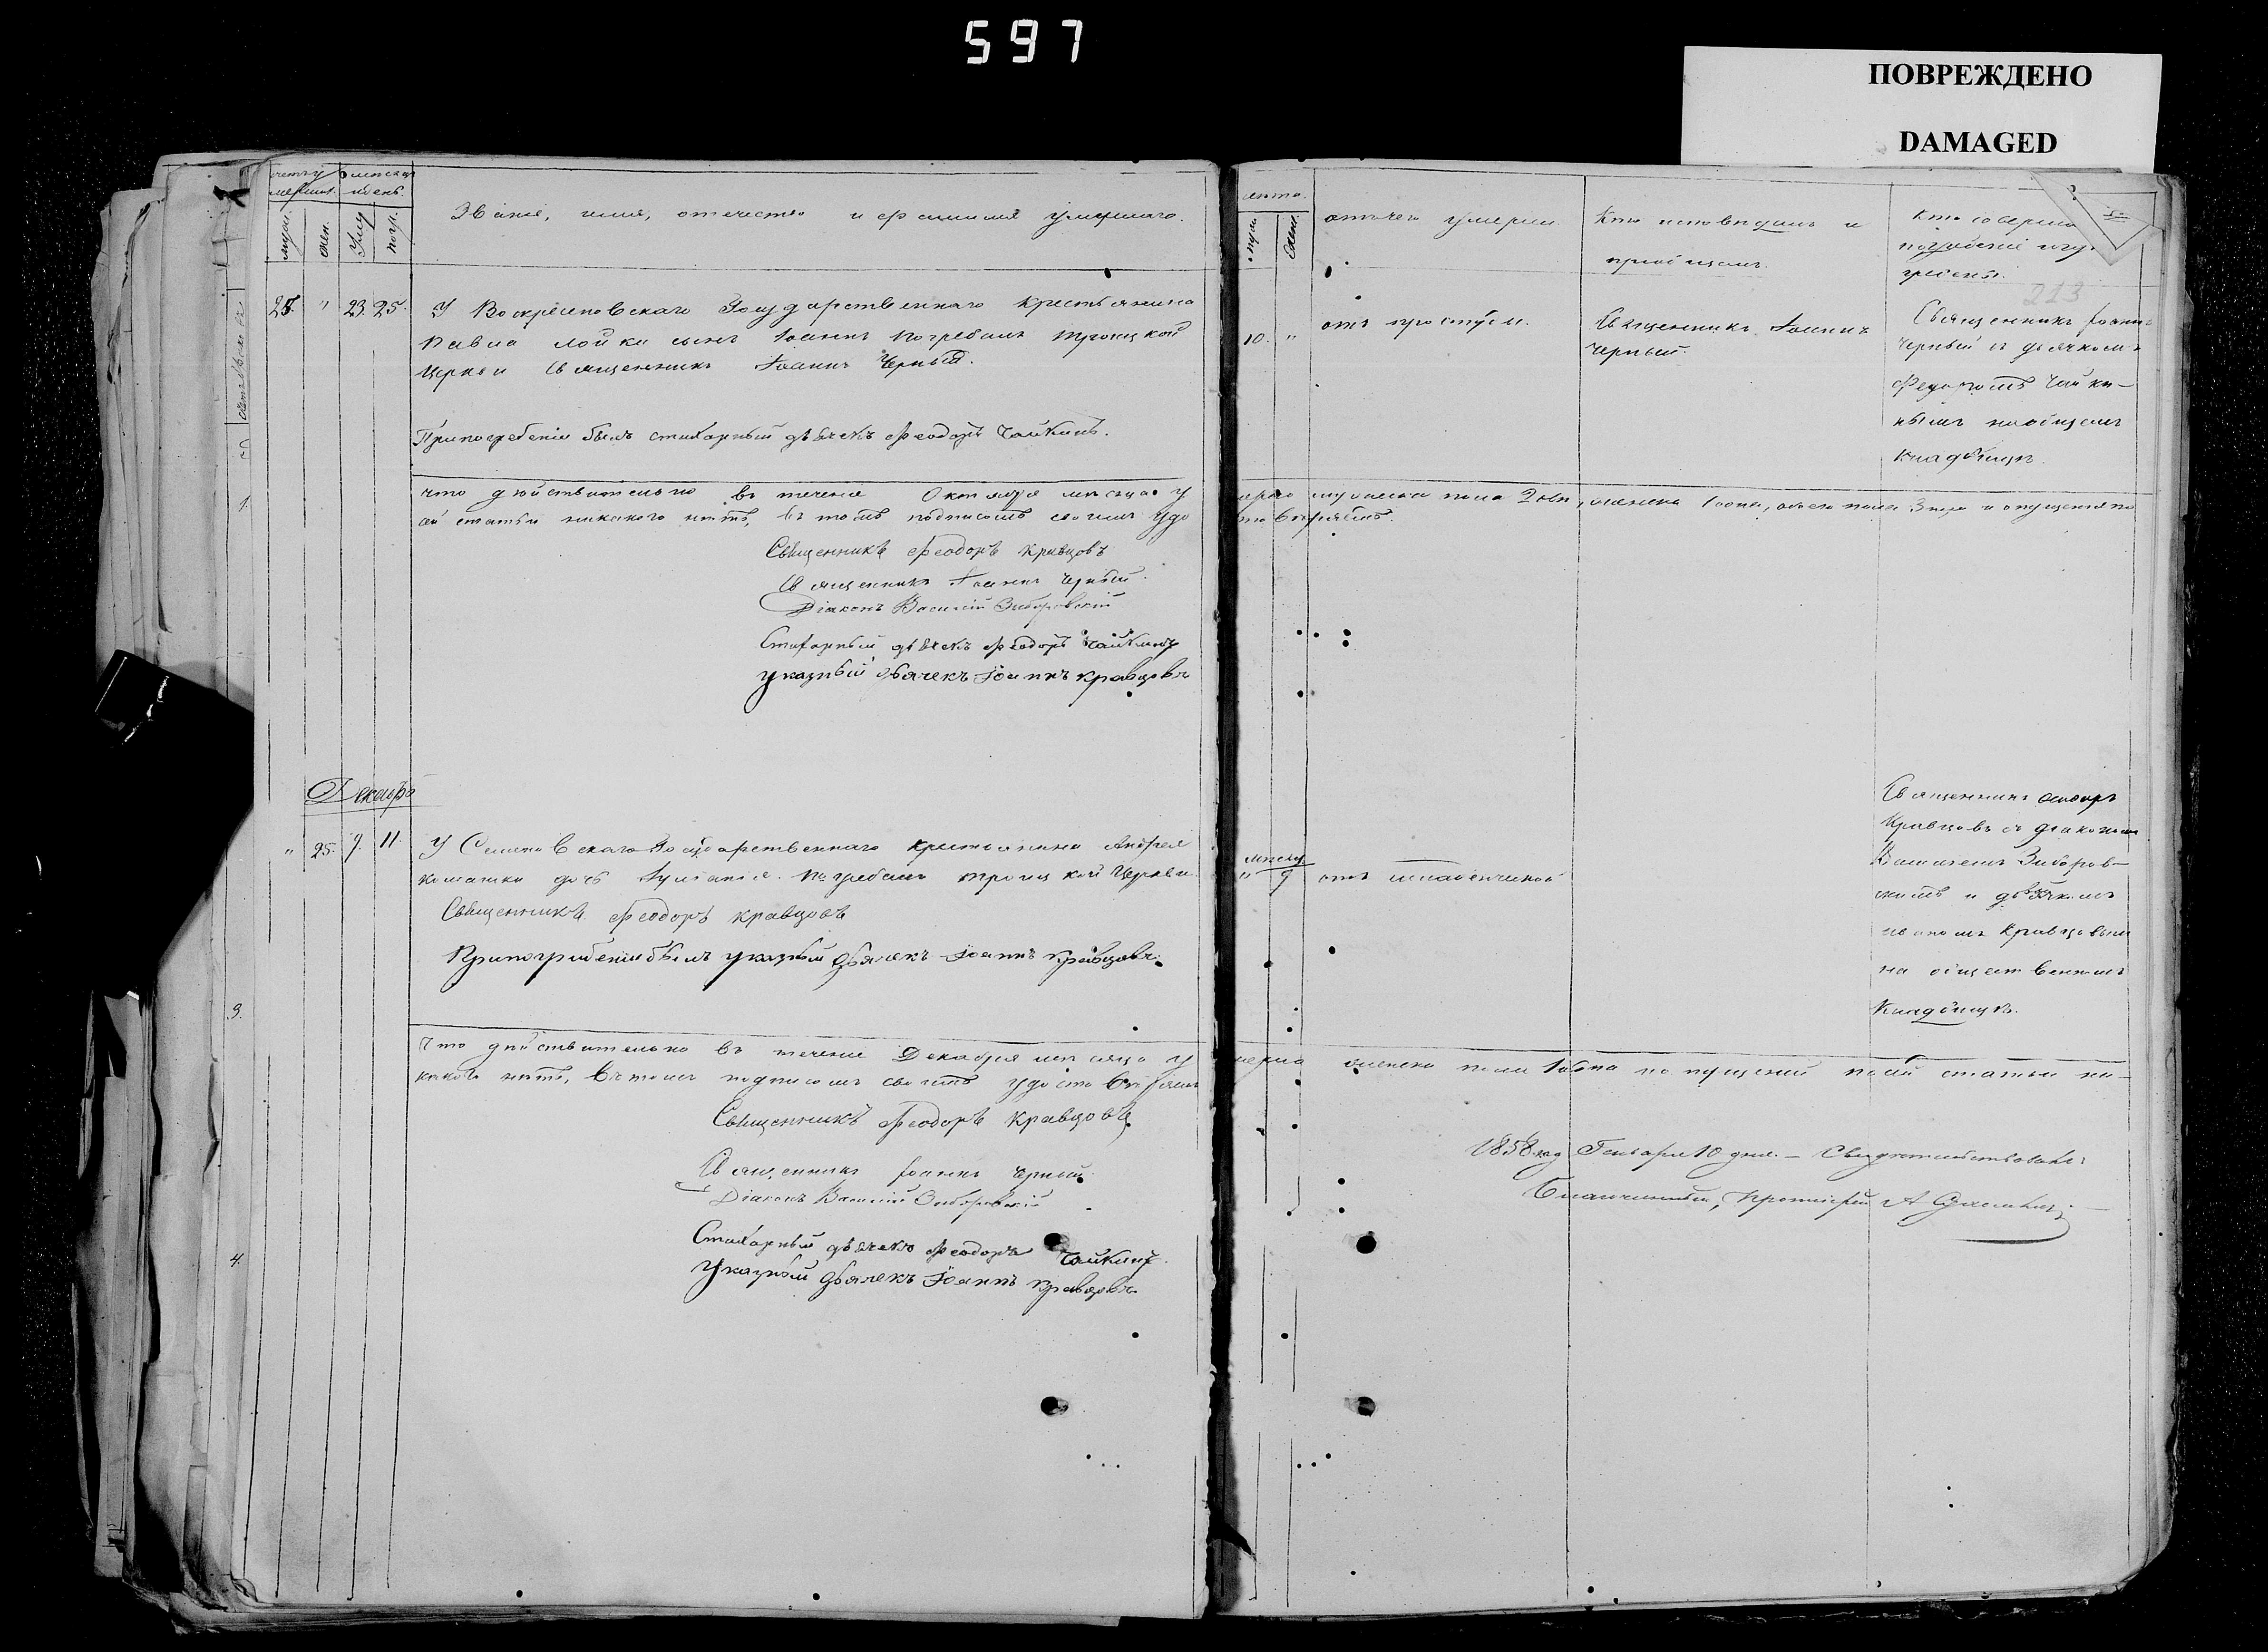 597
ПОВРЕЖДЕНО
DAMAGED
Званіе, имя, отечество и фамилія умершаго.
муж. жен. Умер. погр.
лѣта.
отъ чего умерли.
Кто исповѣдалъ и
пріобщалъ.
Кто соверш
погребеніе
213
25. " 23. 25. У Воскресеновскаго Государственнаго крестьянина
Павла Лойки сынъ Іоаннъ погребалъ Троицкой
Церкви Священникъ Іоаннъ Черный.
При погребеніи былъ стихарный дьячекъ Феодоръ Чайкинъ.
10. " отъ простуды.
Священникъ Іоаннъ
Черный.
Священникъ Іоаннъ
Черный съ дьячкомъ
Федоромъ Чайки-
нымъ на общемъ
кладбищѣ.
Что дѣйствительно въ теченіе Октября мѣсяца у мерло мужеска пола 2 женска 1 обоего пола 3 и опущенія по
сей статьи никакого нѣтъ, въ томъ подписомъ своимъ удо стовѣряемъ.
Священникъ Феодоръ Кравцовъ
Священникъ Іоаннъ Черный.
Діаконъ Василій Зиборовскій
Стихарный дьячекъ Феодоръ Чайкинъ
Указный дьячекъ Іоаннъ Кравцовъ
Декабрь
" 25. 9. 11. У Семеновскаго Государственнаго крестьянина Андрея
дочь погребалъ Троицкой Церкви
Священникъ Феодоръ Кравцовъ
При погребеніи былъ указный дьячекъ Іоаннъ Кравцовъ.
мѣсяц
" 9 отъ младенческой
Священникъ Феодоръ
Кравцовъ съ діакономъ
Василіемъ Зиборов-
скимъ и дьячкомъ
Іваномъ Кравцовымъ
на общественномъ
кладбищѣ.
Что дѣйствительно въ теченіе Декабря мѣсяца у мерла женска пола 1 опущеній по сей статьи ни-
какого нѣтъ, въ томъ подписомъ своимъ удостовѣряемъ
Священникъ Феодоръ Кравцовъ.
Священникъ Іоаннъ Черный
Діаконъ Василій Зиборовскій
Стихарный дьячекъ Феодоръ Чайкинъ.
Указный дьячекъ Іоаннъ Кравцовъ
1858 год Генваря 10 дня. — Свидѣтельствовалъ:
Благочинный, Протоіерей А